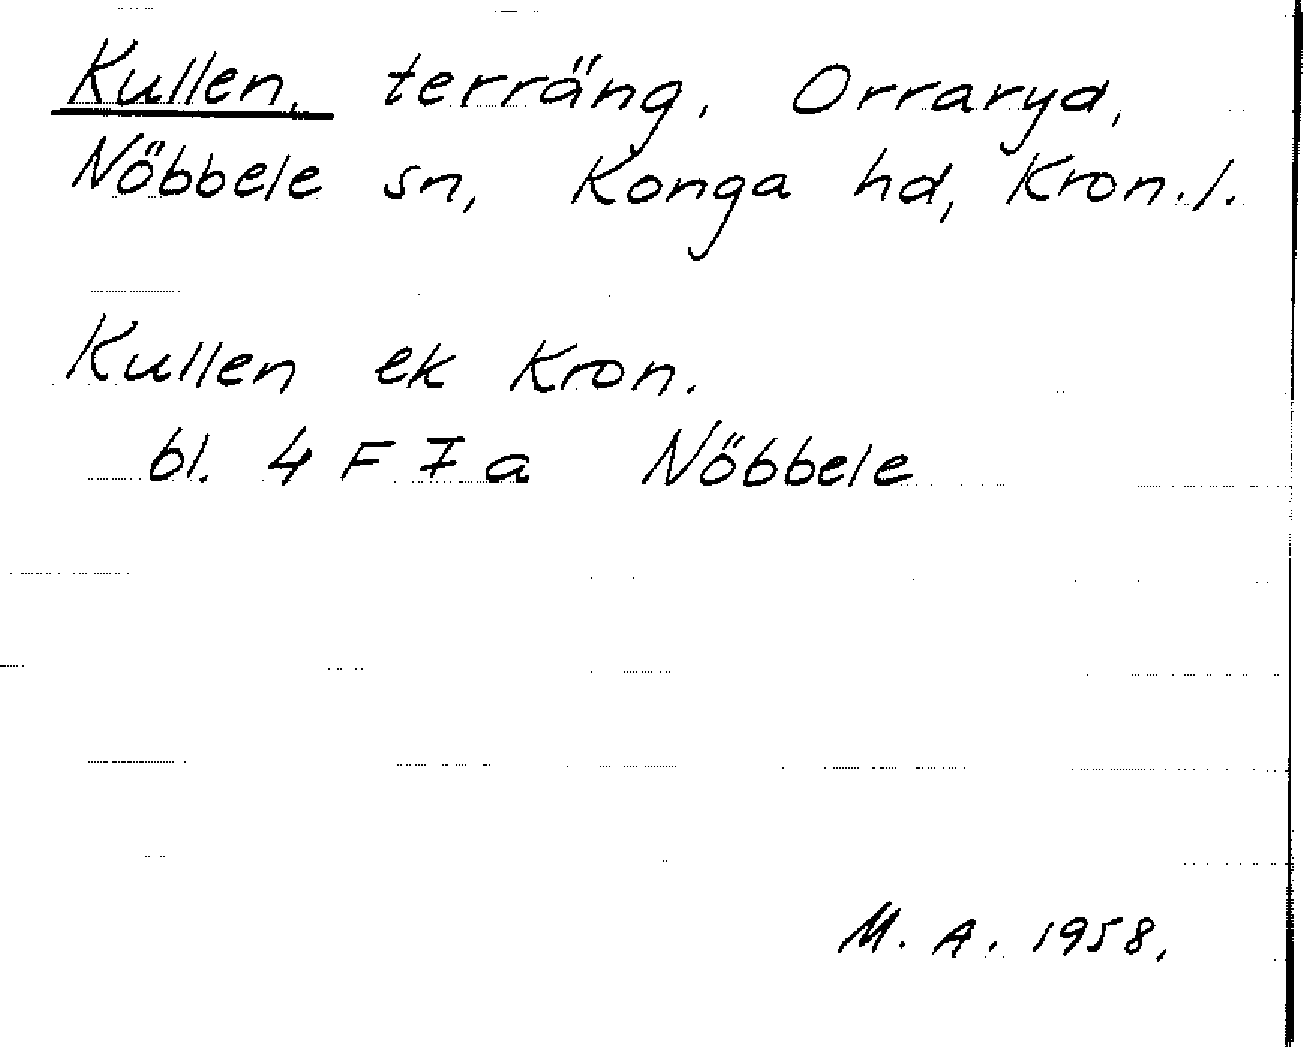 Kullen, terräng, Orraryd,
Nöbbele sn, Konga hd, Kron.l.
Kullen ek Kron.
bl. 4 F 7 a Nöbbele
M. A. 1958.